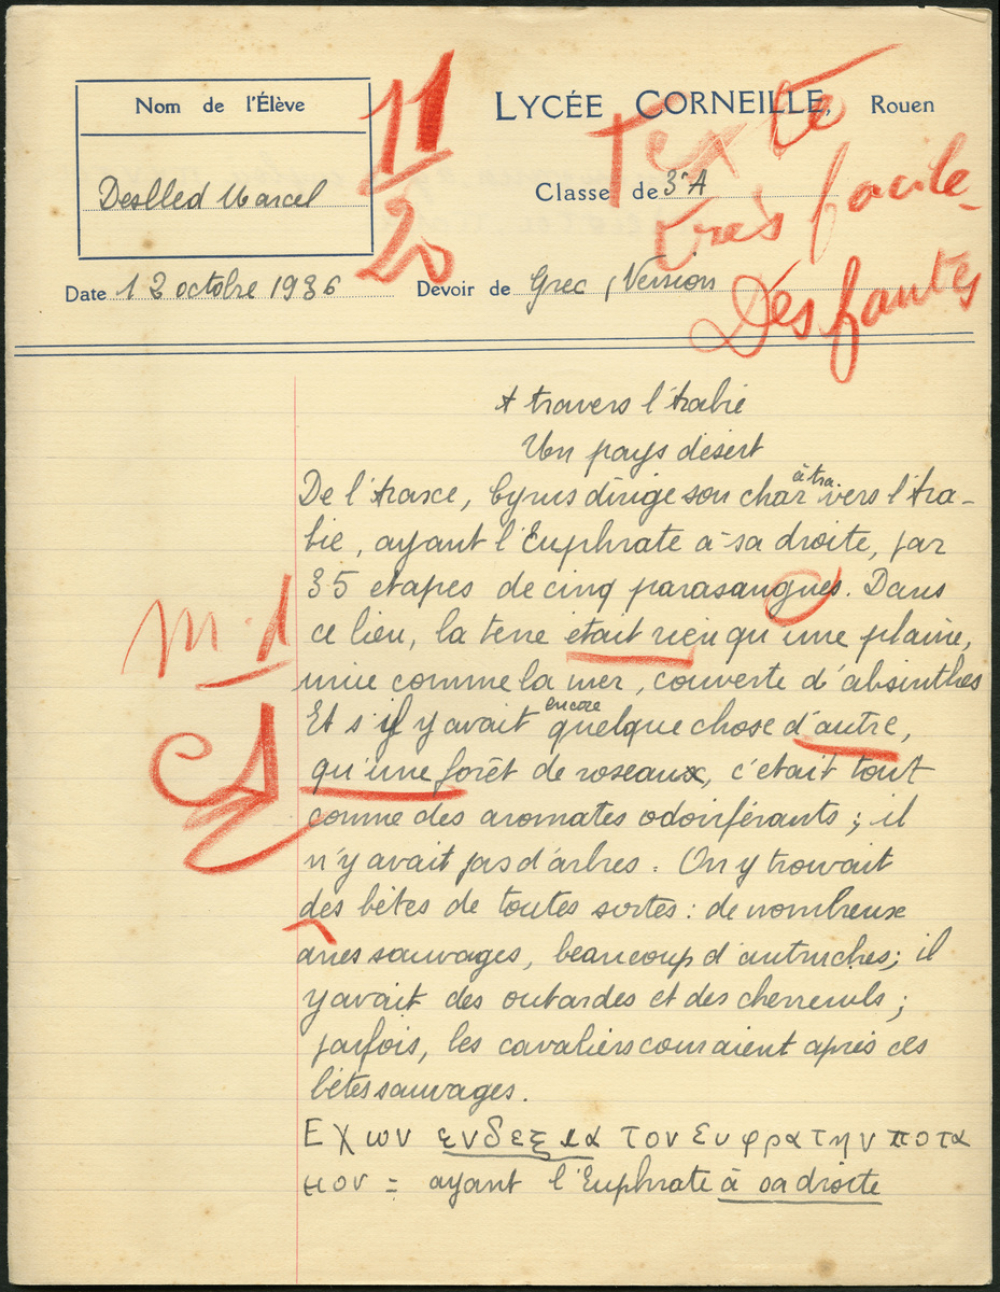 Nom de l'Élève
11
20
LYCÉE CORNEILLE, Rouen
Texte
très facile
Des fautes
Marcel
Classe de 3e A
Date 12 octobre 1936 Devoir de Grec, Version
A travers l'Arabie
Un pays désert
De l'Araxe, Cyrus dirige son char à tra-vers l'Ara-
bie, ayant l'Euphrate à sa droite, par
35 etapes de cinq parasangues. Dans
ce lieu, la terre était rien qu'une plaine,
unie comme la mer, couverte d'absinthes
Et s'il y avait encore quelque chose d'autre,
qu'une forêt de roseaux, c'était tout
comme des aromates odoriférants ; il
n'y avait pas d'arbres. On y trouvait
des bêtes de toutes sortes : de nombreux
ânes sauvages, beaucoup d'autruches; il
y avait des outardes et des chevreuils ;
parfois, les cavaliers couraient après ces
bêtes sauvages.
Εχων ενδεξια τον Ευφρατην ποτα
μον = ayant l'Euphrate à sa droite